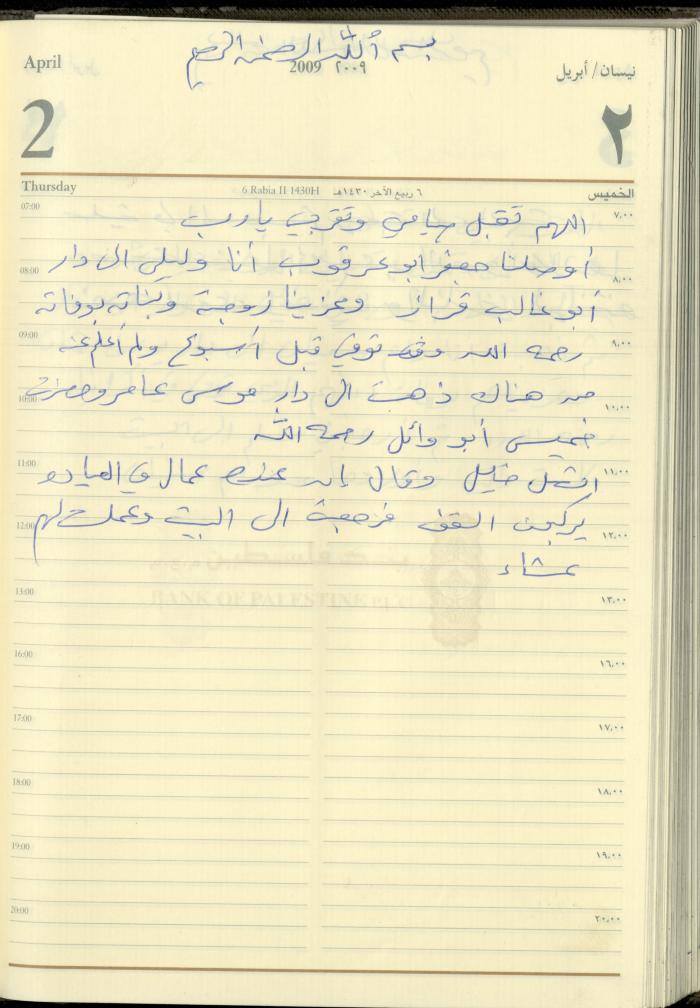 بسم الله الرحمن الرحيم
April
2009 ٢٠٠٩
نيسان / أبريل
2
٢
Thursday
6 Rabia II 1430H
٦ ربيع الآخر ١٤٣٠هـ
الخميس
07:00 ٧,٠٠
اللهم تقبل صيامي وتقربي يا رب
أوصلنا جعفر أبو عرقوب أنا وليلى الى دار
08:00 ٨,٠٠
أبو غالب قزاز وعزينا زوجية وبناته بوفاته
09:00 ٩,٠٠
رحمه الله وقد توفي قبل أسبوع ولم أعلم عنه
من هناك ذهبت الى دار موسى عامر وحضرت
10:00 ١٠,٠٠
خميس أبو وائل رحمه الله
11:00 ١١,٠٠
اتصل خليل وقال إن عنده عمال في العياده
12:00 ١٢,٠٠
يركبون السقف فرجعت الى البيت وعملت لهم
عشاء
BANK OF PALESTINE
13:00 ١٣,٠٠
16:00 ١٦,٠٠
17:00 ١٧,٠٠
18:00 ١٨,٠٠
19:00 ١٩,٠٠
20:00 ٢٠,٠٠